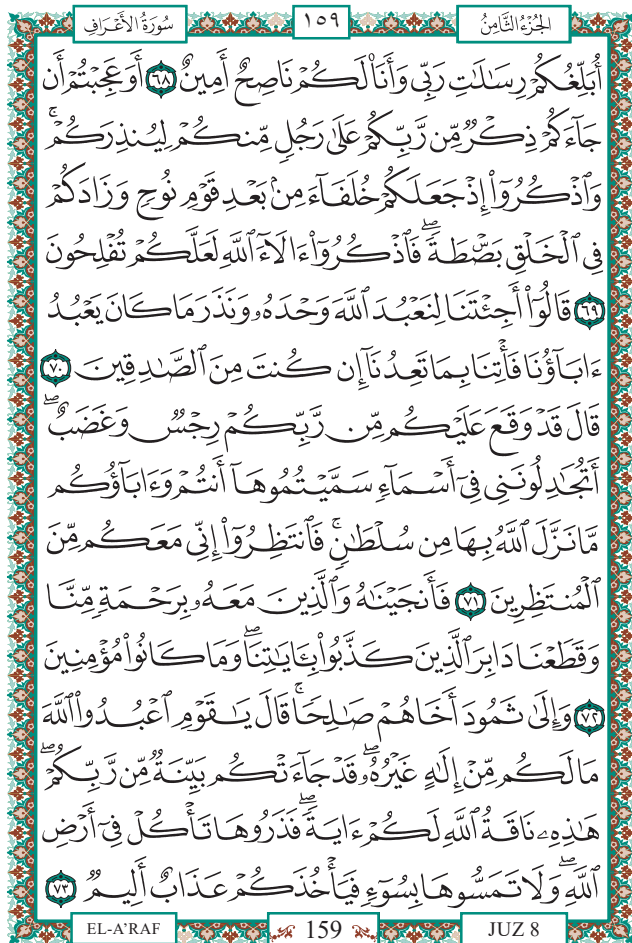 الجُزْءُ الثَّامِنُ
١٥٩
سُورَةُ الأَعْرَافِ
أُبَلِّغُكُمْ رِسَٰلَٰتِ رَبِّى وَأَنَا۠ لَكُمْ نَاصِحٌ أَمِينٌ ٦٨ أَوَعَجِبْتُمْ أَن
جَآءَكُمْ ذِكْرٌ مِّن رَّبِّكُمْ عَلَىٰ رَجُلٍ مِّنكُمْ لِيُنذِرَكُمْ ۚ
وَٱذْكُرُوٓا۟ إِذْ جَعَلَكُمْ خُلَفَآءَ مِنۢ بَعْدِ قَوْمِ نُوحٍ وَزَادَكُمْ
فِى ٱلْخَلْقِ بَصْۜطَةً ۖ فَٱذْكُرُوٓا۟ ءَالَآءَ ٱللَّهِ لَعَلَّكُمْ تُفْلِحُونَ
٦٩ قَالُوٓا۟ أَجِئْتَنَا لِنَعْبُدَ ٱللَّهَ وَحْدَهُۥ وَنَذَرَ مَا كَانَ يَعْبُدُ
ءَابَآؤُنَا فَأْتِنَا بِمَا تَعِدُنَآ إِن كُنتَ مِنَ ٱلصَّٰدِقِينَ ٧٠
قَالَ قَدْ وَقَعَ عَلَيْكُم مِّن رَّبِّكُمْ رِجْسٌ وَغَضَبٌ ۖ
أَتُجَٰدِلُونَنِى فِىٓ أَسْمَآءٍ سَمَّيْتُمُوهَآ أَنتُمْ وَءَابَآؤُكُم
مَّا نَزَّلَ ٱللَّهُ بِهَا مِن سُلْطَٰنٍ ۚ فَٱنتَظِرُوٓا۟ إِنِّى مَعَكُم مِّنَ
ٱلْمُنتَظِرِينَ ٧١ فَأَنجَيْنَٰهُ وَٱلَّذِينَ مَعَهُۥ بِرَحْمَةٍ مِّنَّا
وَقَطَعْنَا دَابِرَ ٱلَّذِينَ كَذَّبُوا۟ بِـَٔايَٰتِنَا ۖ وَمَا كَانُوا۟ مُؤْمِنِينَ
٧٢ وَإِلَىٰ ثَمُودَ أَخَاهُمْ صَٰلِحًا ۗ قَالَ يَٰقَوْمِ ٱعْبُدُوا۟ ٱللَّهَ
مَا لَكُم مِّنْ إِلَٰهٍ غَيْرُهُۥ ۖ قَدْ جَآءَتْكُم بَيِّنَةٌ مِّن رَّبِّكُمْ ۖ
هَٰذِهِۦ نَاقَةُ ٱللَّهِ لَكُمْ ءَايَةً ۖ فَذَرُوهَا تَأْكُلْ فِىٓ أَرْضِ
ٱللَّهِ ۖ وَلَا تَمَسُّوهَا بِسُوٓءٍ فَيَأْخُذَكُمْ عَذَابٌ أَلِيمٌ ٧٣
EL-A'RAF 159 JUZ 8